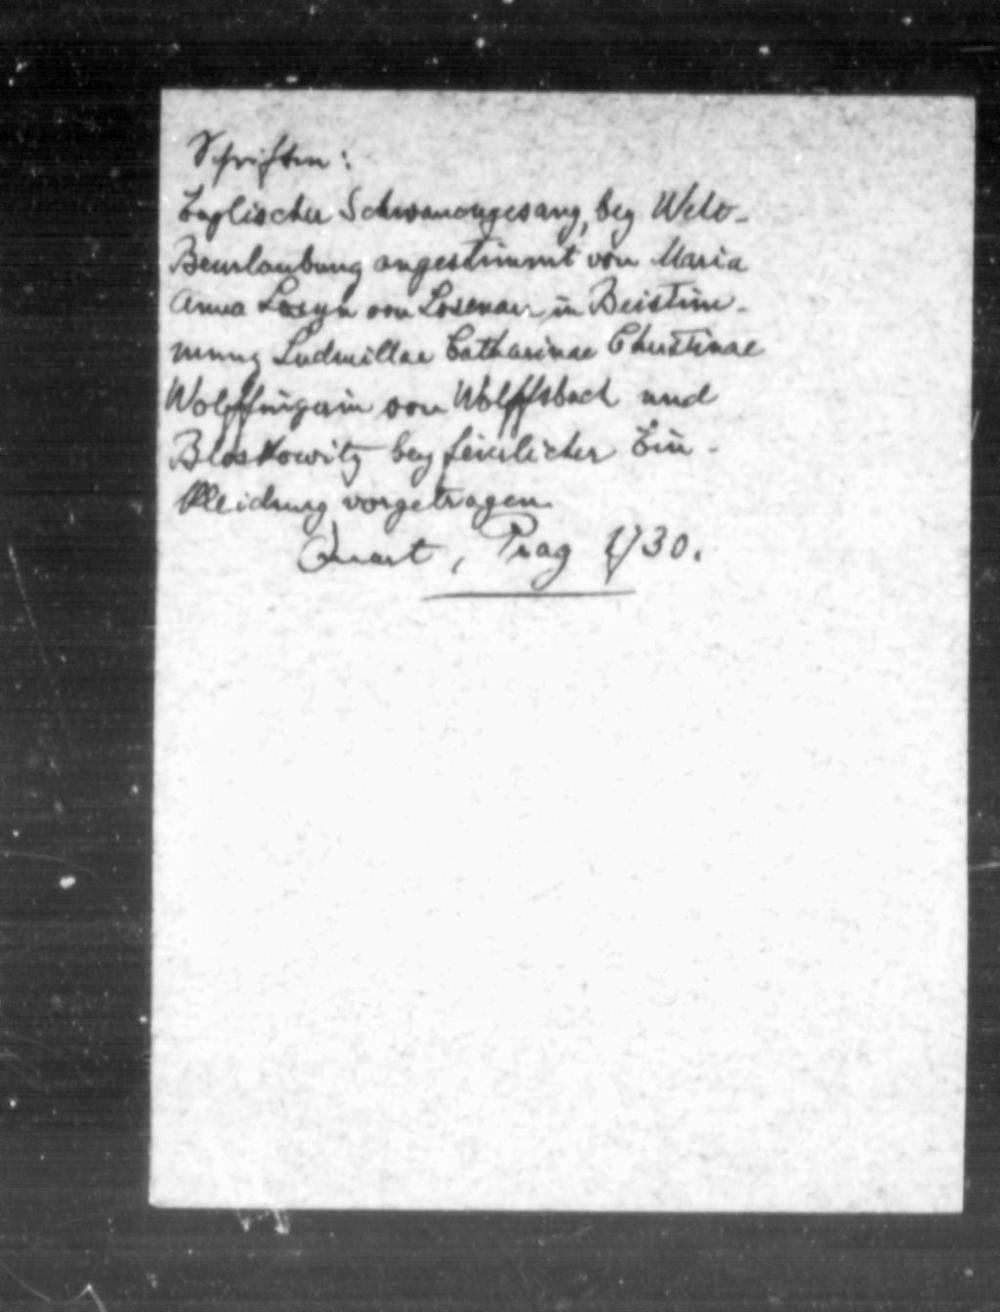 Schriften:
Englischer Schwanengesang, bey Welt-
Beurlaubung angestimmt von Maria
Anna Losyn von Losenau in Beistim-
mung Ludmillae Catharinae Christinae
Wolffingerin von Wolffsbach und
Bloskowitz bey feierlicher Ein-
kleidung vorgetragen
Quart, Prag 1730.